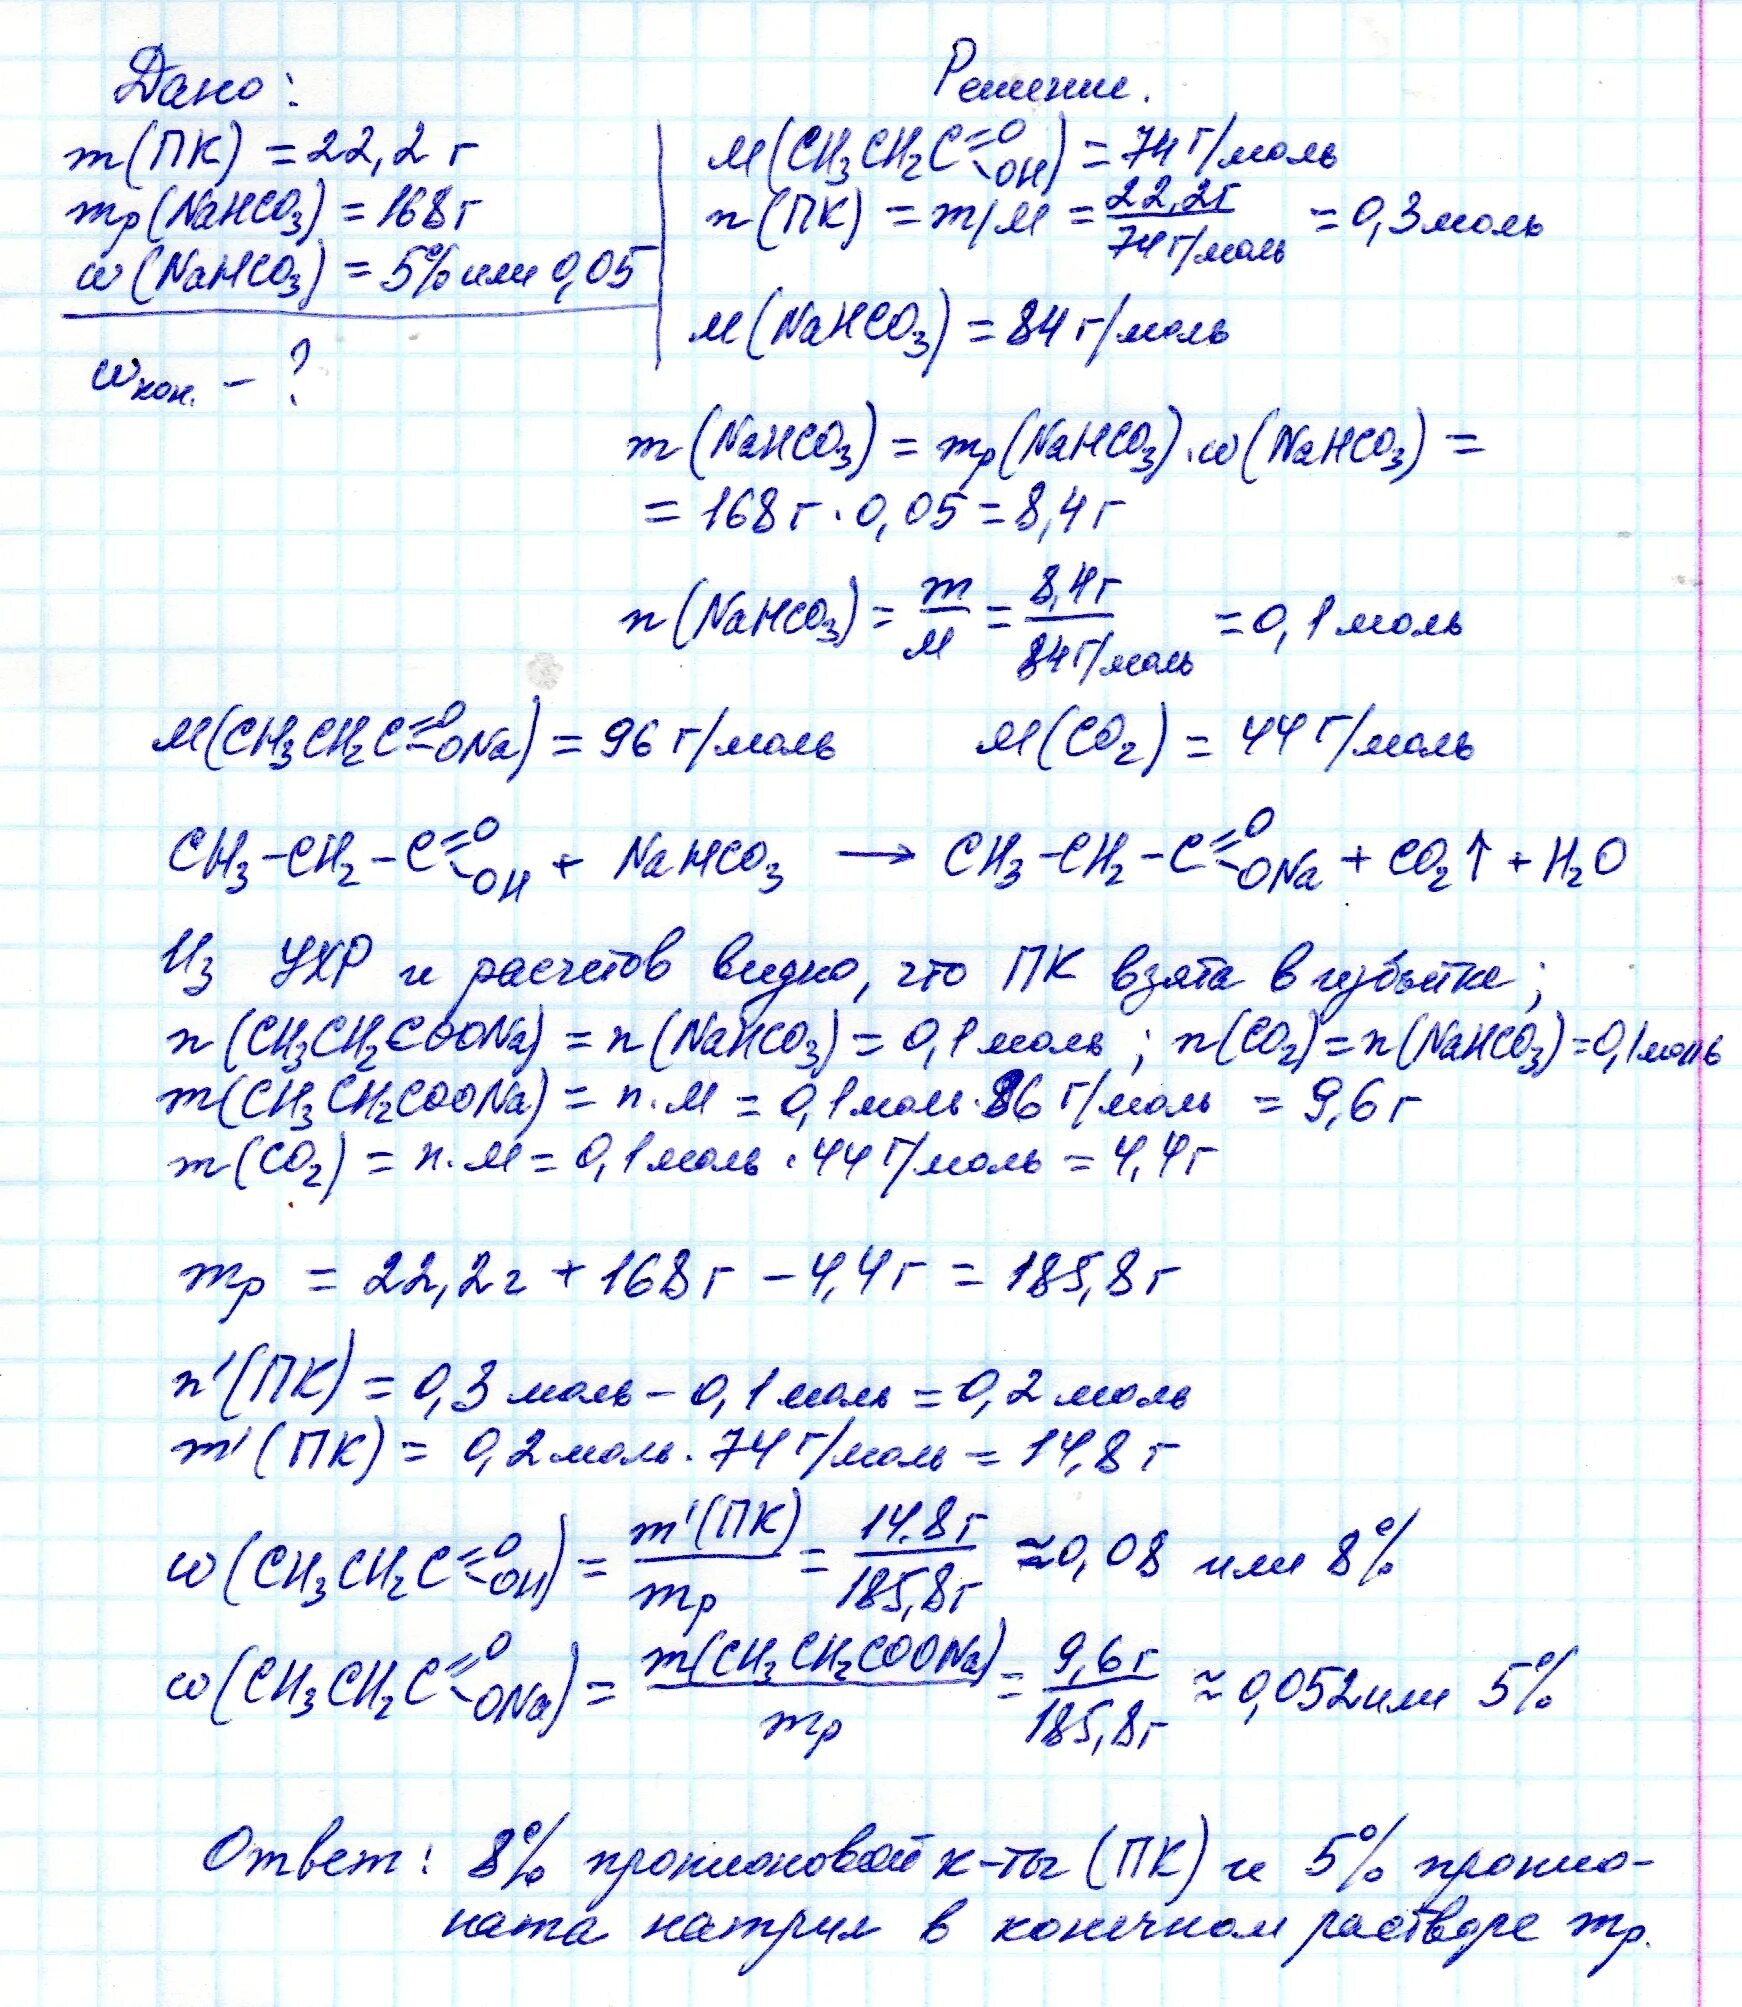 Дано:
m(ПК) = 22,2 г
mр(NaHCO3) = 168 г
w(NaHCO3) = 5% или 0,05
wкон. - ?
Решение.
M(CH3CH2C=O-OH) = 74 г/моль
n(ПК) = m/M = 22,2г/74г/моль = 0,3 моль
M(NaHCO3) = 84 г/моль
m(NaHCO3) = mр(NaHCO3)·w(NaHCO3) =
= 168 г · 0,05 = 8,4 г
n(NaHCO3) = m/M = 8,4г/84г/моль = 0,1 моль
M(CH3CH2C=O-ONa) = 96 г/моль M(CO2) = 44 г/моль
CH3-CH2-C=O-OH + NaHCO3 → CH3-CH2-C=O-ONa + CO2↑ + H2O
Из УХР и расчетов видно, что ПК взята в избытке;
n(CH3CH2COONa) = n(NaHCO3) = 0,1 моль; n(CO2) = n(NaHCO3) = 0,1 моль
m(CH3CH2COONa) = n·M = 0,1 моль·86 г/моль = 9,6 г
m(CO2) = n·M = 0,1 моль · 44 г/моль = 4,4 г
mр = 22,2 г + 168 г - 4,4 г = 185,8 г
n'(ПК) = 0,3 моль - 0,1 моль = 0,2 моль
m'(ПК) = 0,2 моль · 74 г/моль = 14,8 г
w(CH3CH2C=O-OH) = m'(ПК)/mр = 14,8г/185,8г ≈ 0,08 или 8%
w(CH3CH2C=O-ONa) = m(CH3CH2COONa)/mр = 9,6г/185,8г ≈ 0,052 или 5%
Ответ: 8% пропионовой к-ты (ПК) и 5% пропио-
ната натрия в конечном растворе mр.